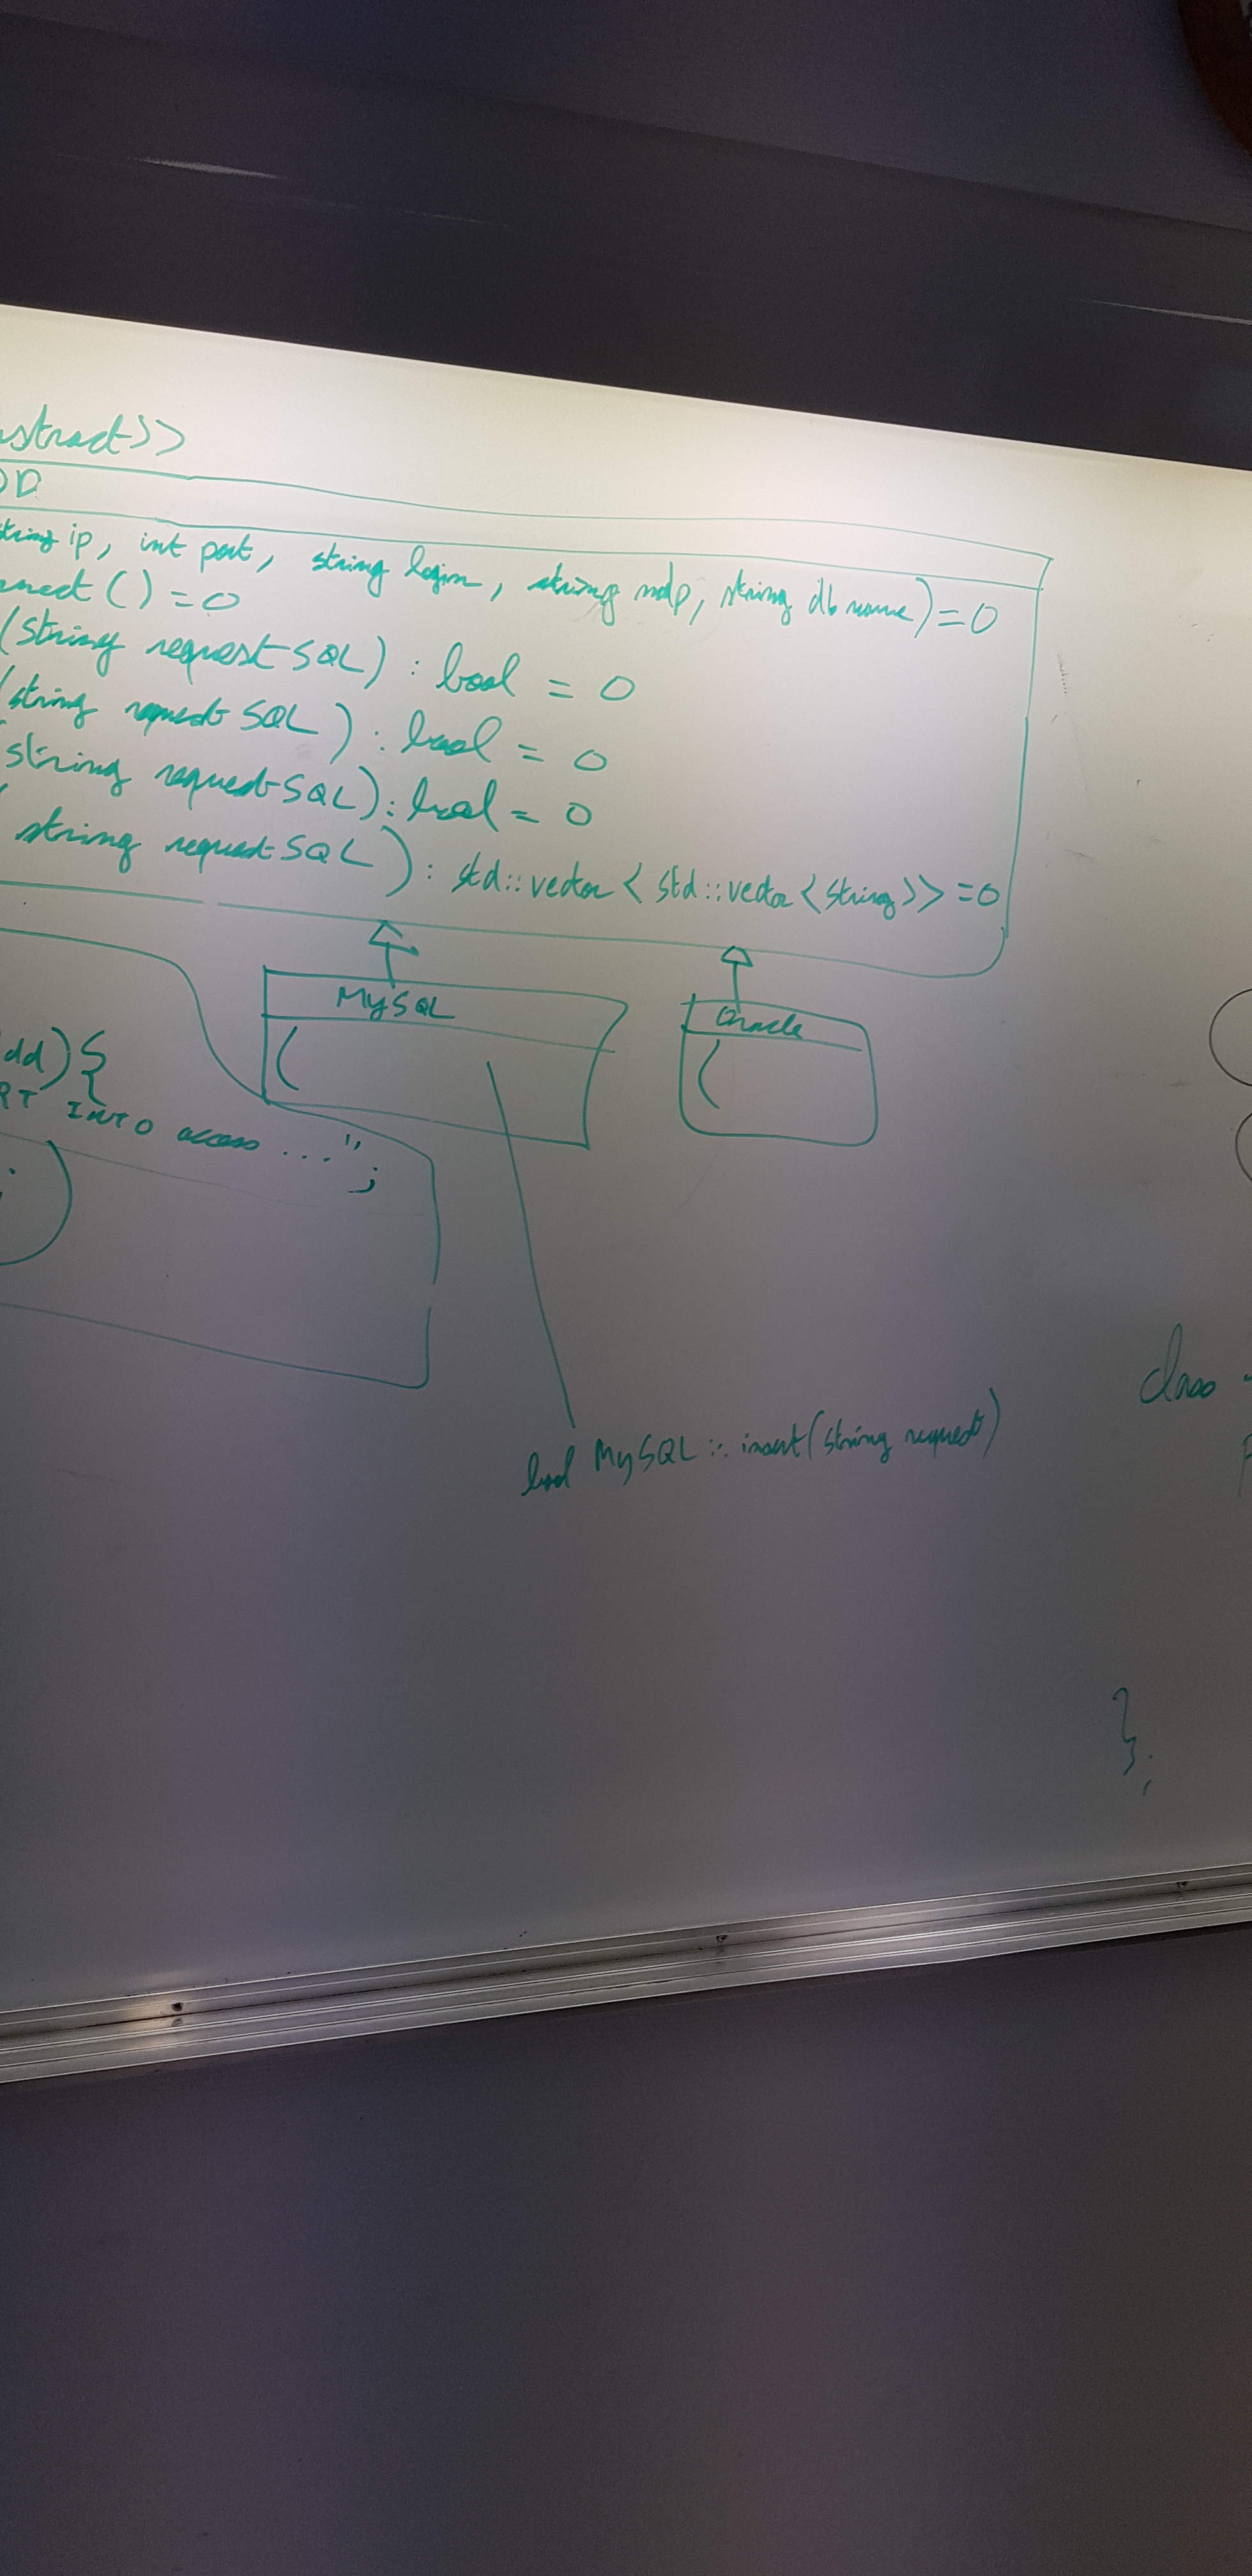 stract>>
DD
string ip, int port, string login, string mdp, string db name) = 0
nnect () = 0
(string requestSQL) : bool = 0
(string requestSQL) : bool = 0
string requestSQL) : bool = 0
string requestSQL) : std::vector < std::vector <string>> = 0
MySQL
Oracle
dd) {
RT INTO access ... ";
;
bool MySQL :: insert (string request)
class
};